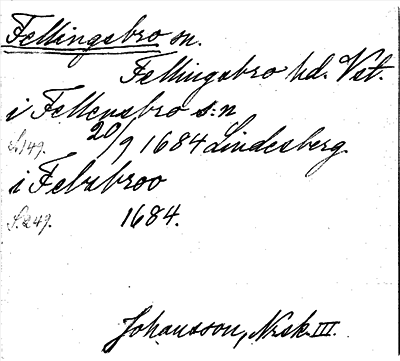 Fellingsbro sn.
Fellingsbro hd. Vst.
i Fellensbro s:n
S.149. 20/9 1684 Lindesberg.
i Felsbroo
S.249. 1684.
Johansson, Nsk. III.